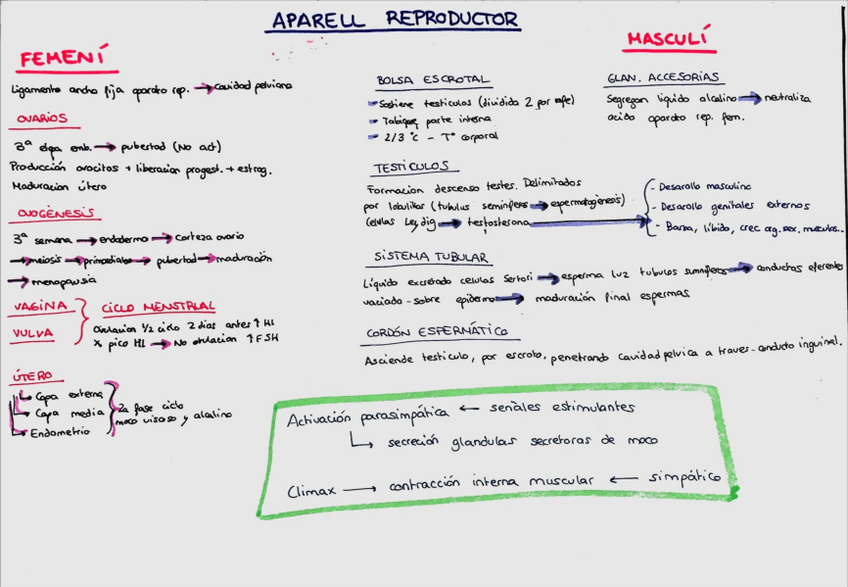 APARELL REPRODUCTOR
FEMENÍ
Ligamento ancho fija aparato rep. → cavidad pelviana
OVARIOS
3ª etpa emb. → pubertad (No act)
Producción ovocitos + liberacion progest. + estrog.
Maduración útero
OVOGÉNESIS
3ª semana → endodermo → Corteza ovario
→ meiosis → primordiales → pubertad → maduración
→ menopausia
VAGINA
VULVA
CICLO MENSTRUAL
Ovulacion 1/2 ciclo 2 dias antes ↑ Hl
x pico Hl → No ovulacion ↑ FSH
ÚTERO
Capa externa
Capa media
Endometrio
2a fase ciclo
moco viscoso y alcalino
MASCULÍ
BOLSA ESCROTAL
- Sostiene testiculos (dividida 2 por rafe)
- Tabique parte interna
- 2/3 °c - Tª corporal
GLAN. ACCESORIAS
Segregan liquido alcalino → neutraliza
acido aparato rep. fem.
TESTÍCULOS
Formacion descenso testes. Delimitados
por lobulillos (tubulus seminiferos → espermatogénesis)
Celulas Leydig → testosterona →
- Desarollo masculino
- Desarollo genitales externos
- Barba, líbido, crec org. sex. musculos..
SISTEMA TUBULAR
Líquido excretado celulas Sertori → esperma luz tubulos seminiferos → conductos eferentes
vaciado-sobre epidermo → maduración final espermas
CORDÓN ESPERMÁTICO
Asciende testículo, por escroto, penetrando cavidad pelvica a traves-conducto inguinal.
Activación parasimpática ← señales estimulantes
↳ secreción glandulas secretoras de moco
Climax → contracción interna muscular ← simpático